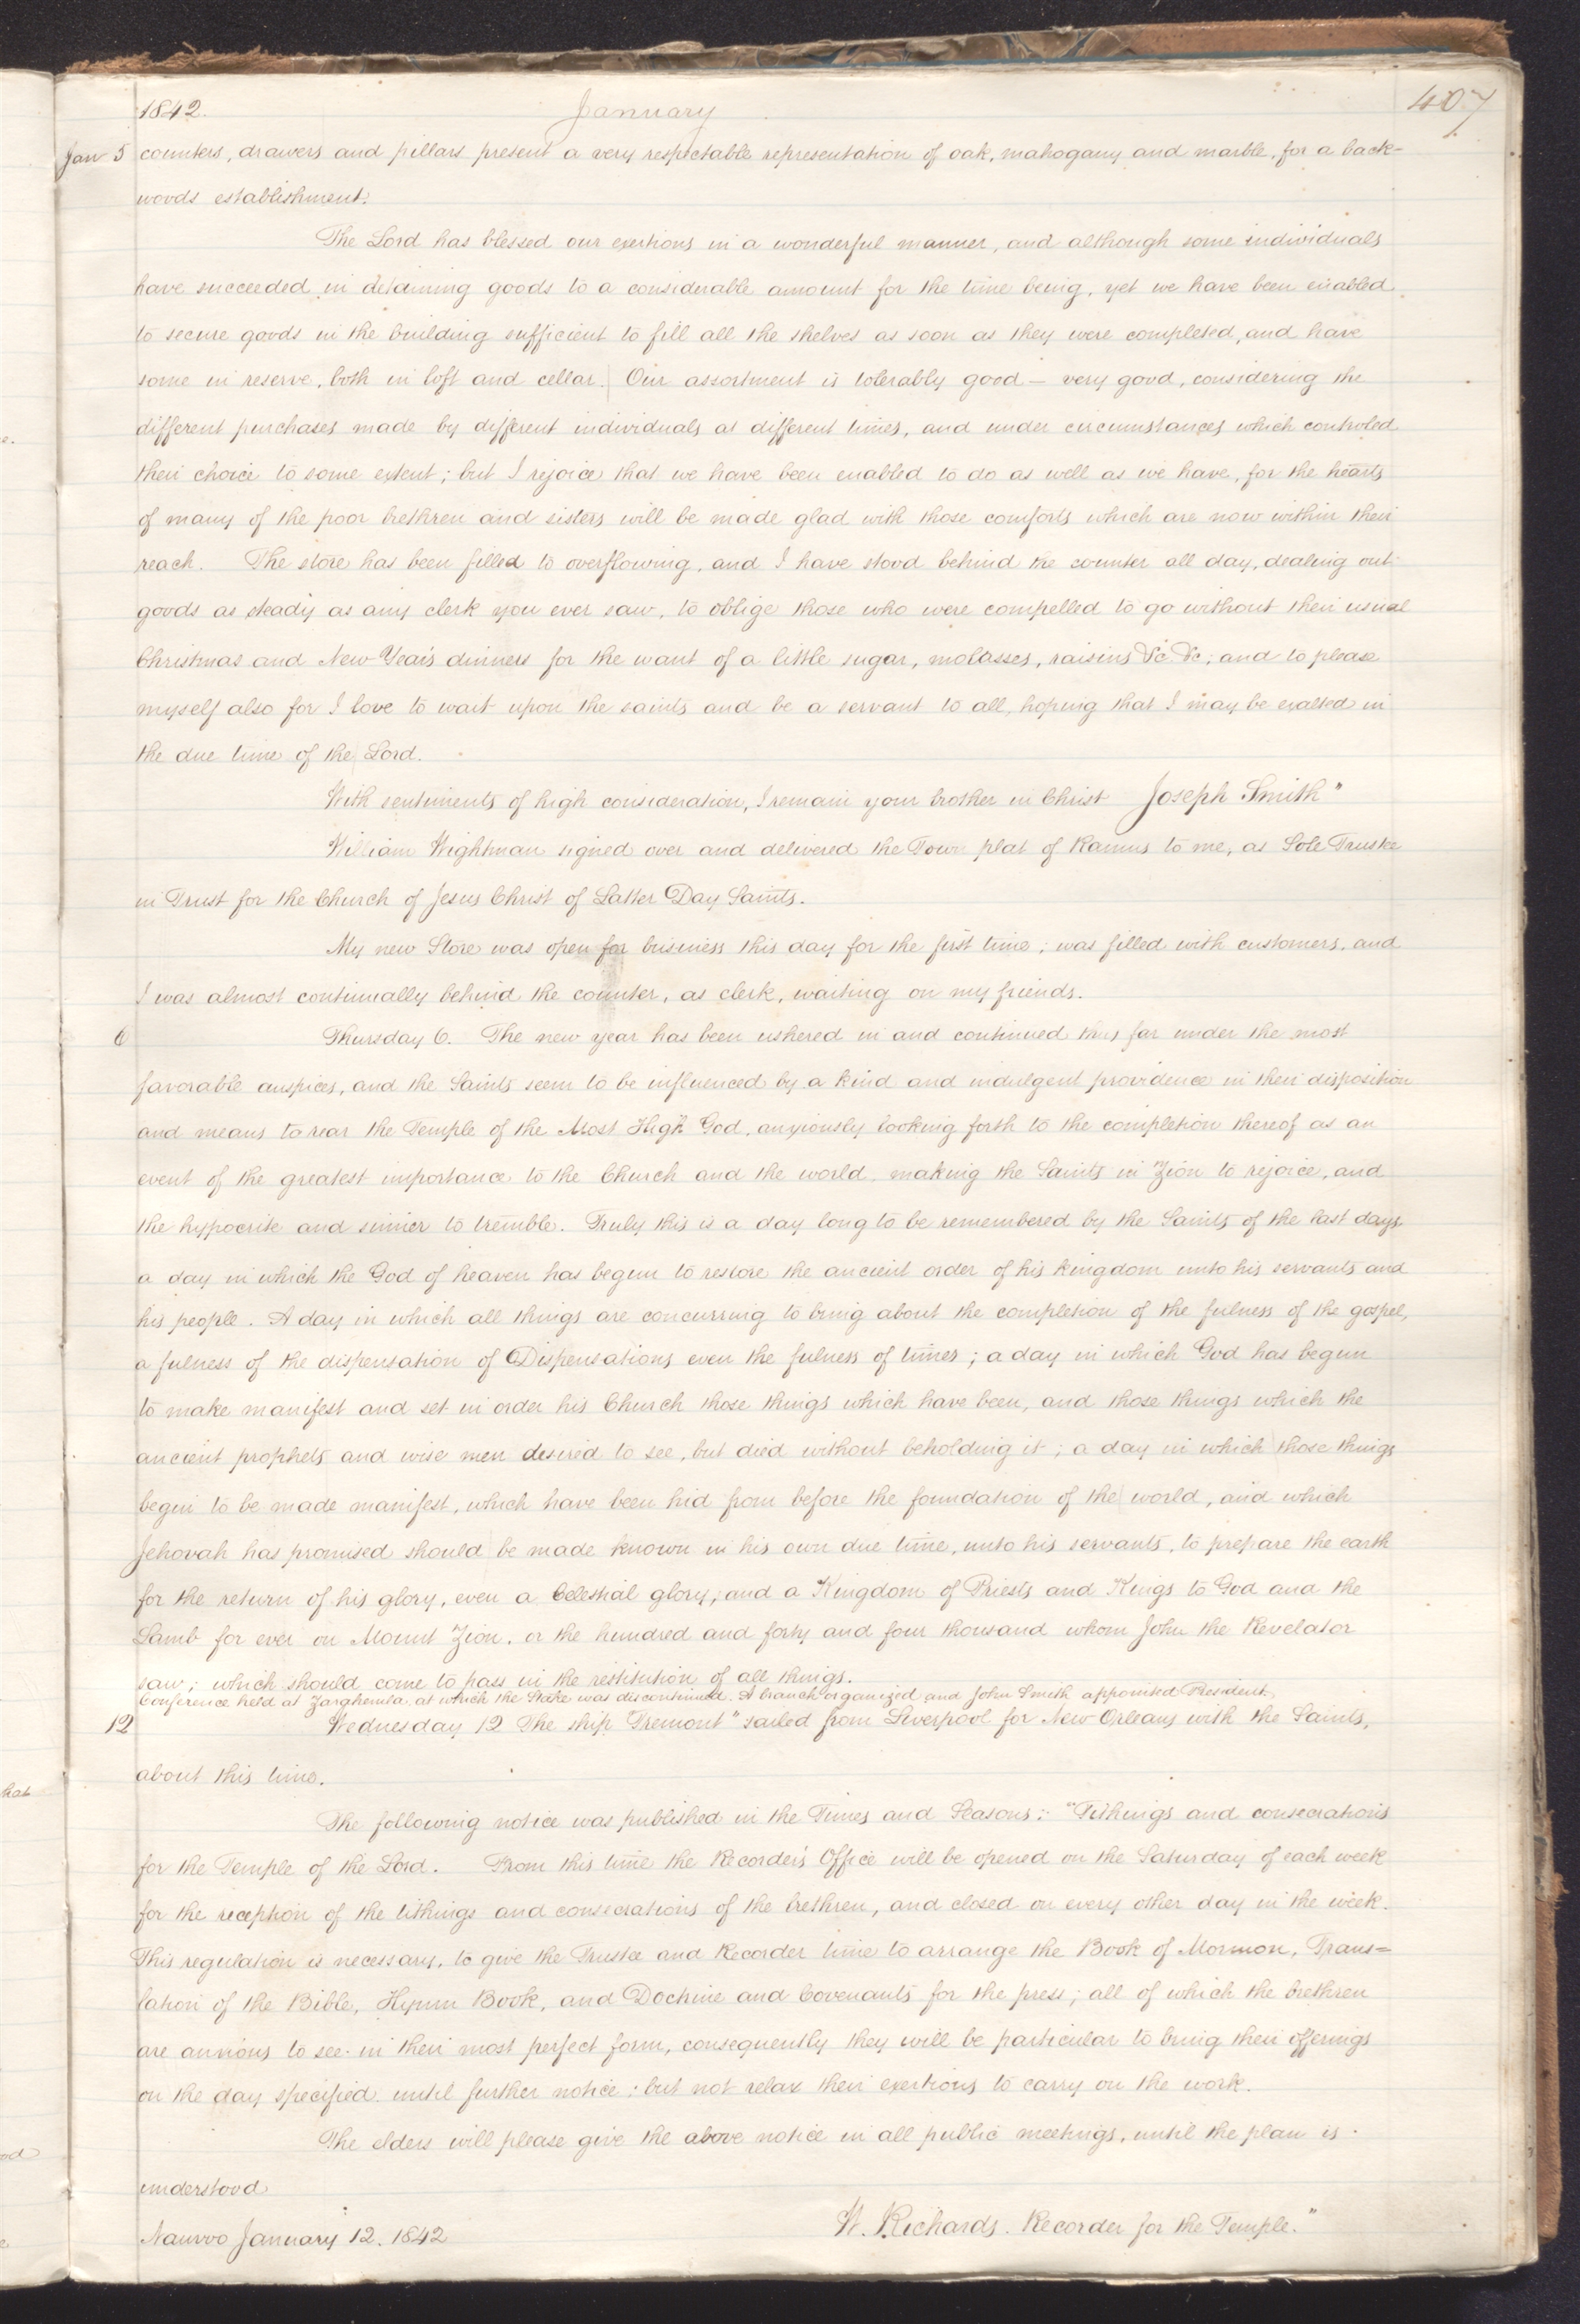 1842. January 407
Jan 5 counters, drawers and pillars present a very respectable representation of oak, mahogany and marble, for a back-
woods establishment.
The Lord has blessed our exertions in a wonderful manner, and although some individuals
have succeeded in detaining goods to a considerable amount for the time being, yet we have been enabled
to secure goods in the building sufficient to fill all the shelves as soon as they were completed, and have
some in reserve, both in loft and cellar. Our assortment is tolerably good — very good, considering the
different purchases made by different individuals at different times, and under circumstances which controled
their choice to some extent; but I rejoice that we have been enabled to do as well as we have, for the hearts
of many of the poor brethren and sisters will be made glad with those comforts which are now within their
reach. The store has been filled to overflowing, and I have stood behind the counter all day, dealing out
goods as steady as any clerk you ever saw, to oblige those who were compelled to go without their usual
Christmas and New-Year's dinners for the want of a little sugar, molasses, raisins &c. &c; and to please
myself also for I love to wait upon the saints and be a servant to all, hoping that I may be exalted in
the due time of the Lord.
With sentiments of high consideration, I remain your brother in Christ Joseph Smith"
William Wightman signed over and delivered the Town plat of Ramus to me, as Sole Trustee
in Trust for the Church of Jesus Christ of Latter Day Saints.
My new Store was open for business this day for the first time; was filled with customers, and
I was almost continually behind the counter, as clerk, waiting on my friends.
6 Thursday 6. The new year has been ushered in and continued thus far under the most
favorable auspices, and the Saints seem to be influenced by a kind and indulgent providence in their disposition
and means to rear the Temple of the Most High God, anxiously looking forth to the completion thereof as an
event of the greatest importance to the Church and the world, making the Saints in Zion to rejoice, and
the hypocrite and sinner to tremble. Truly this is a day long to be remembered by the Saints of the last days,
a day in which the God of heaven has begun to restore the ancient order of his kingdom unto his servants and
his people. A day in which all things are concurring to bring about the completion of the fulness of the gospel,
a fulness of the dispensation of Dispensations even the fulness of times; a day in which God has begun
to make manifest and set in order his Church those things which have been, and those things which the
ancient prophets and wise men desired to see, but died without beholding it; a day in which those things
begin to be made manifest, which have been hid from before the foundation of the world, and which
Jehovah has promised should be made known in his own due time, unto his servants, to prepare the earth
for the return of his glory, even a Celestial glory, and a Kingdom of Priests and Kings to God and the
Lamb for ever on Mount Zion, or the hundred and forty and four thousand whom John the Revelator
saw; which should come to pass in the restitution of all things.
Conference held at Zarahemla, at which the Stake was discontinued. A branch organized and John Smith appointed President.
12 Wednesday 12 The ship "Tremont" sailed from Liverpool for New-Orleans with the Saints,
about this time.
The following notice was published in the Times and Seasons:- "Tithings and consecrations
for the Temple of the Lord. From this time the Recorder's Office will be opened on the Saturday of each week
for the reception of the tithings and consecrations of the brethren, and closed on every other day in the week.
This regulation is necessary, to give the Trustee and Recorder time to arrange the Book of Mormon, Trans=
lation of the Bible, Hymn Book, and Doctrine and Covenants for the press; all of which the brethren
are anxious to see in their most perfect form, consequently they will be particular to bring their offerings
on the day specified until further notice; but not relax their exertions to carry on the work.
The elders will please give the above notice in all public meetings, until the plan is
understood
W. Richards. Recorder for the Temple."
Nauvoo January 12. 1842